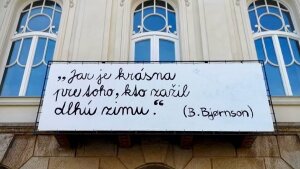 „Jar je krásna
pre toho, kto zažil
dlhú zimu.“ (B. Bjørnson)